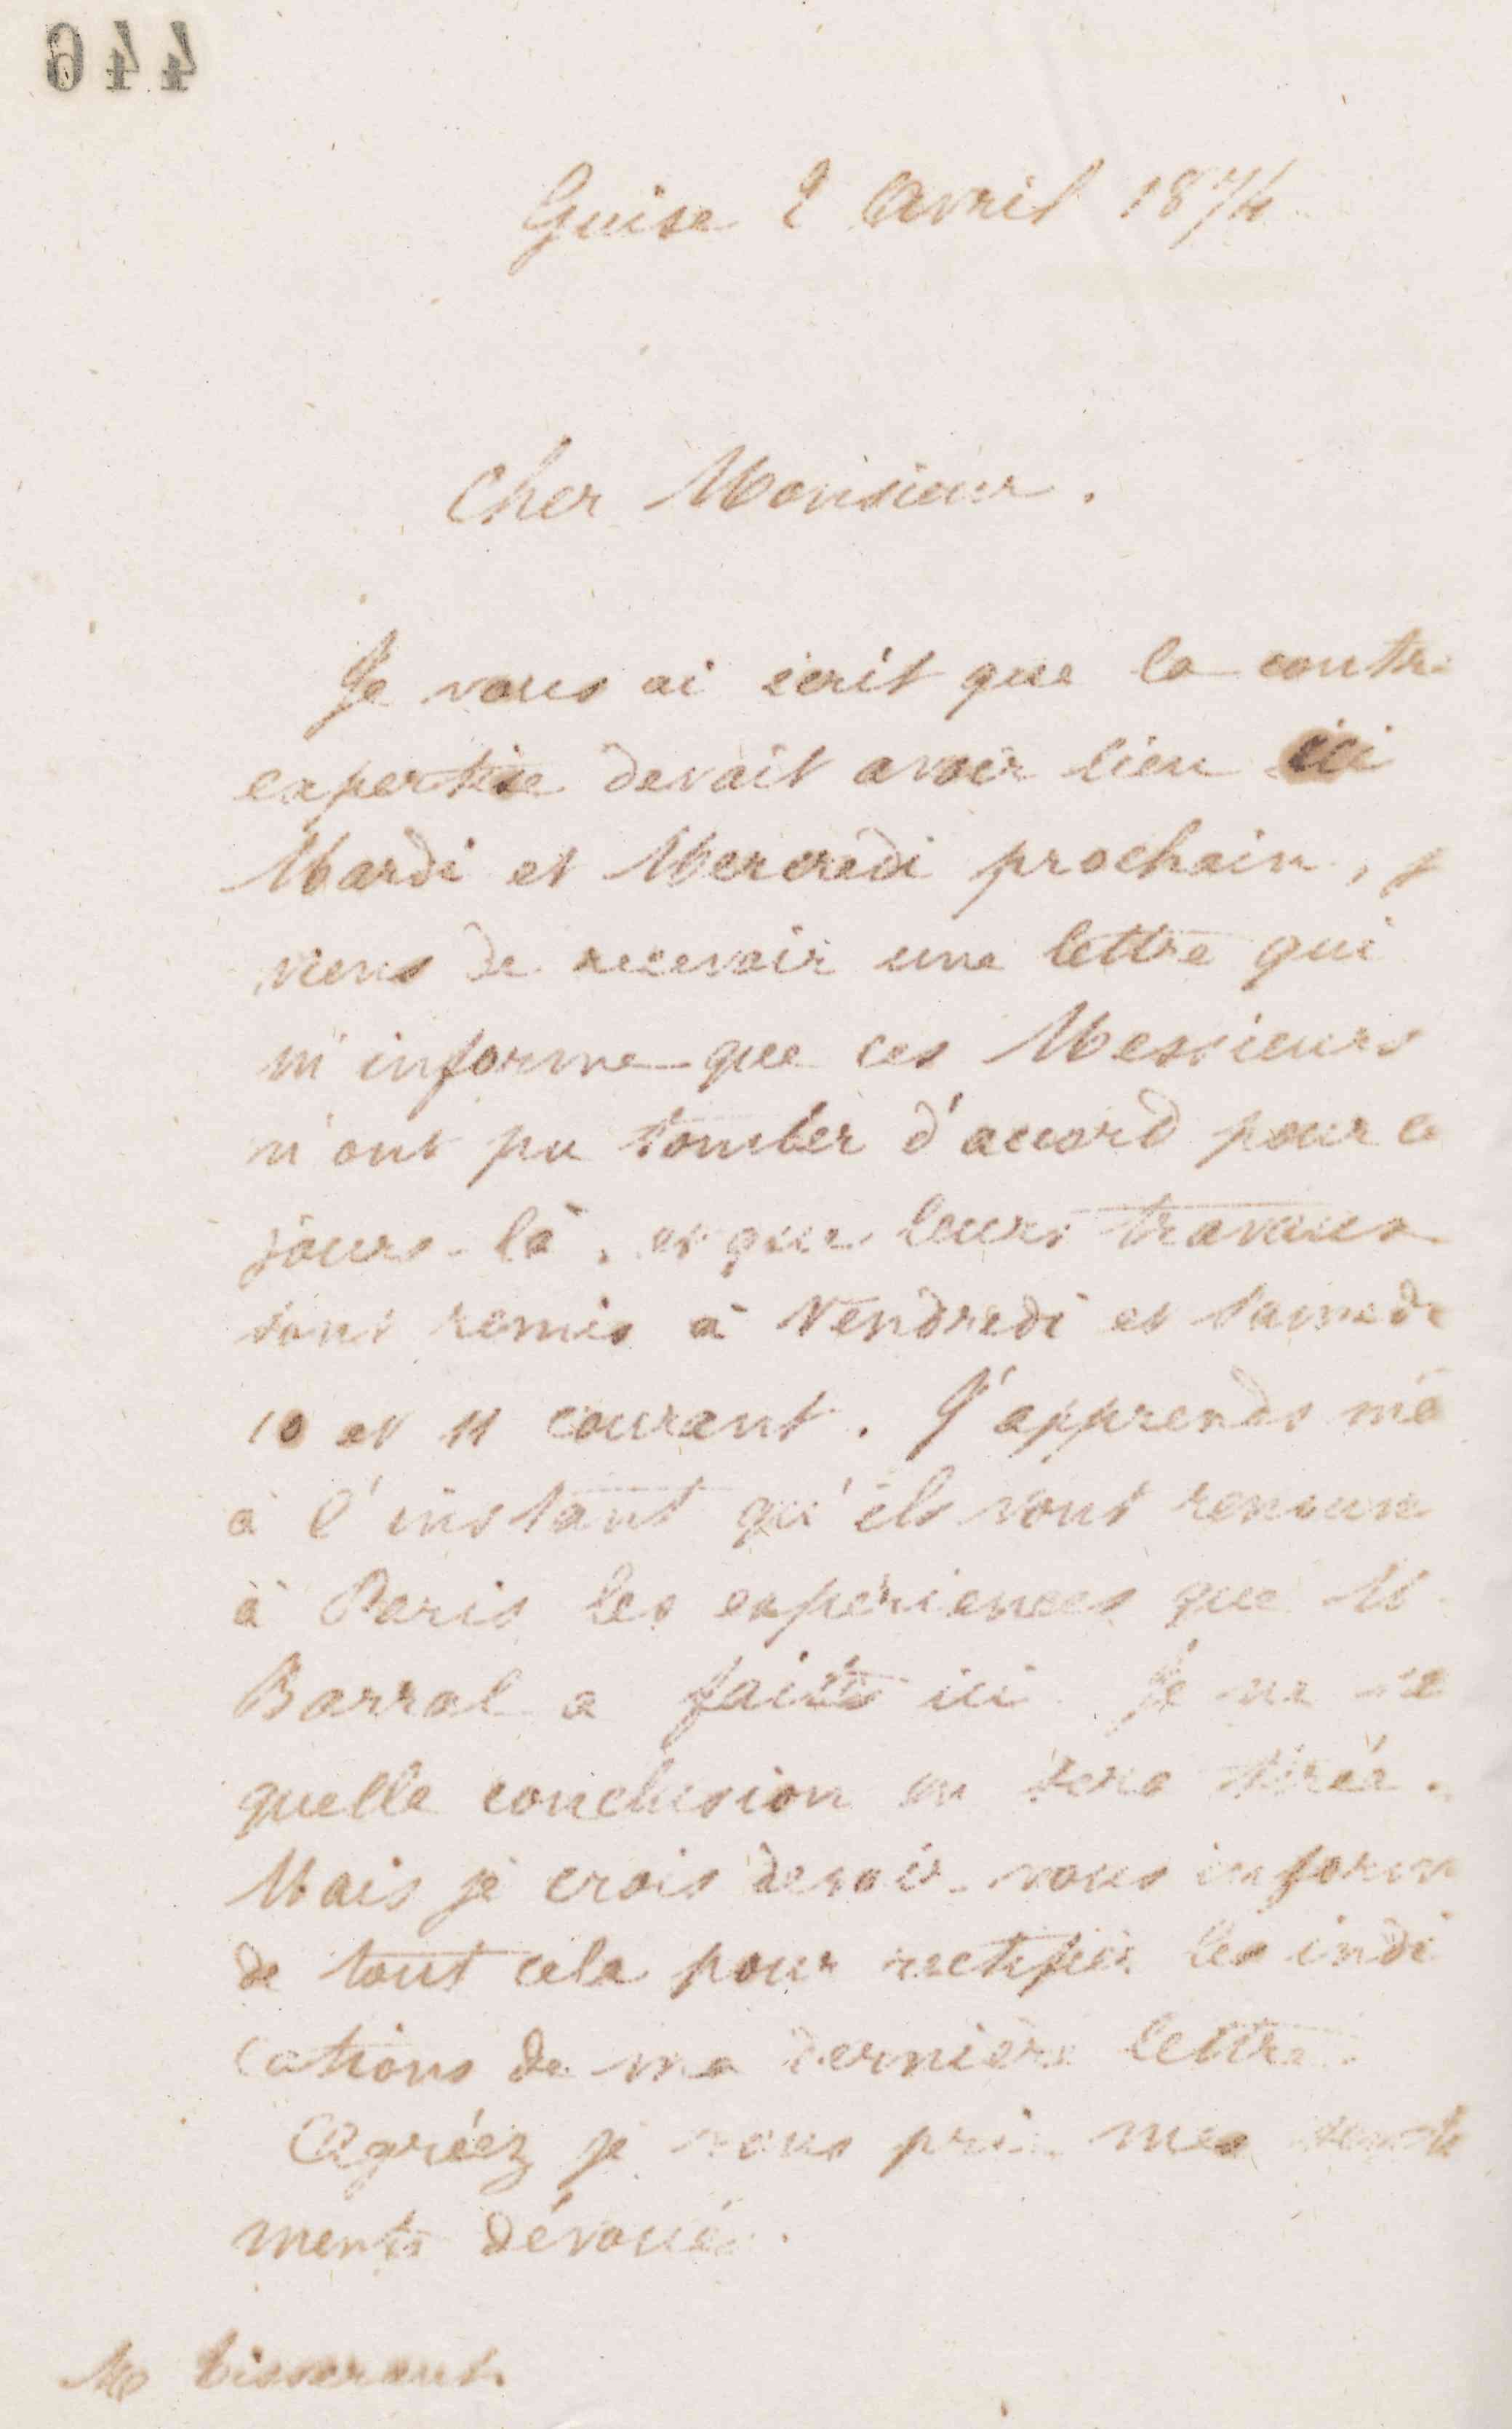 446
Guise 2 Avril 1874
Cher Monsieur.
Je vous ai écrit que la contre
expertise devait avoir lieu ici
Mardi et Mercredi prochain, j
viens de recevoir une lettre qui
m'informe que ces Messieurs
n'ont pu tomber d'accord pour ce
jours-là, et que leurs travaux
sont remis à Vendredi et Samedi
10 et 11 courant. J'apprends mê
à l'instant qu'ils vont renouve
à Paris les expériences que M
Barral a faites ici Je ne sa
quelle conclusion en sera tirée.
Mais je crois devoir vous inform
de tout cela pour rectifier les indi
cations de ma dernière lettre.
Agréez je vous prie mes senti
ments dévoués.
Mr Tisserant